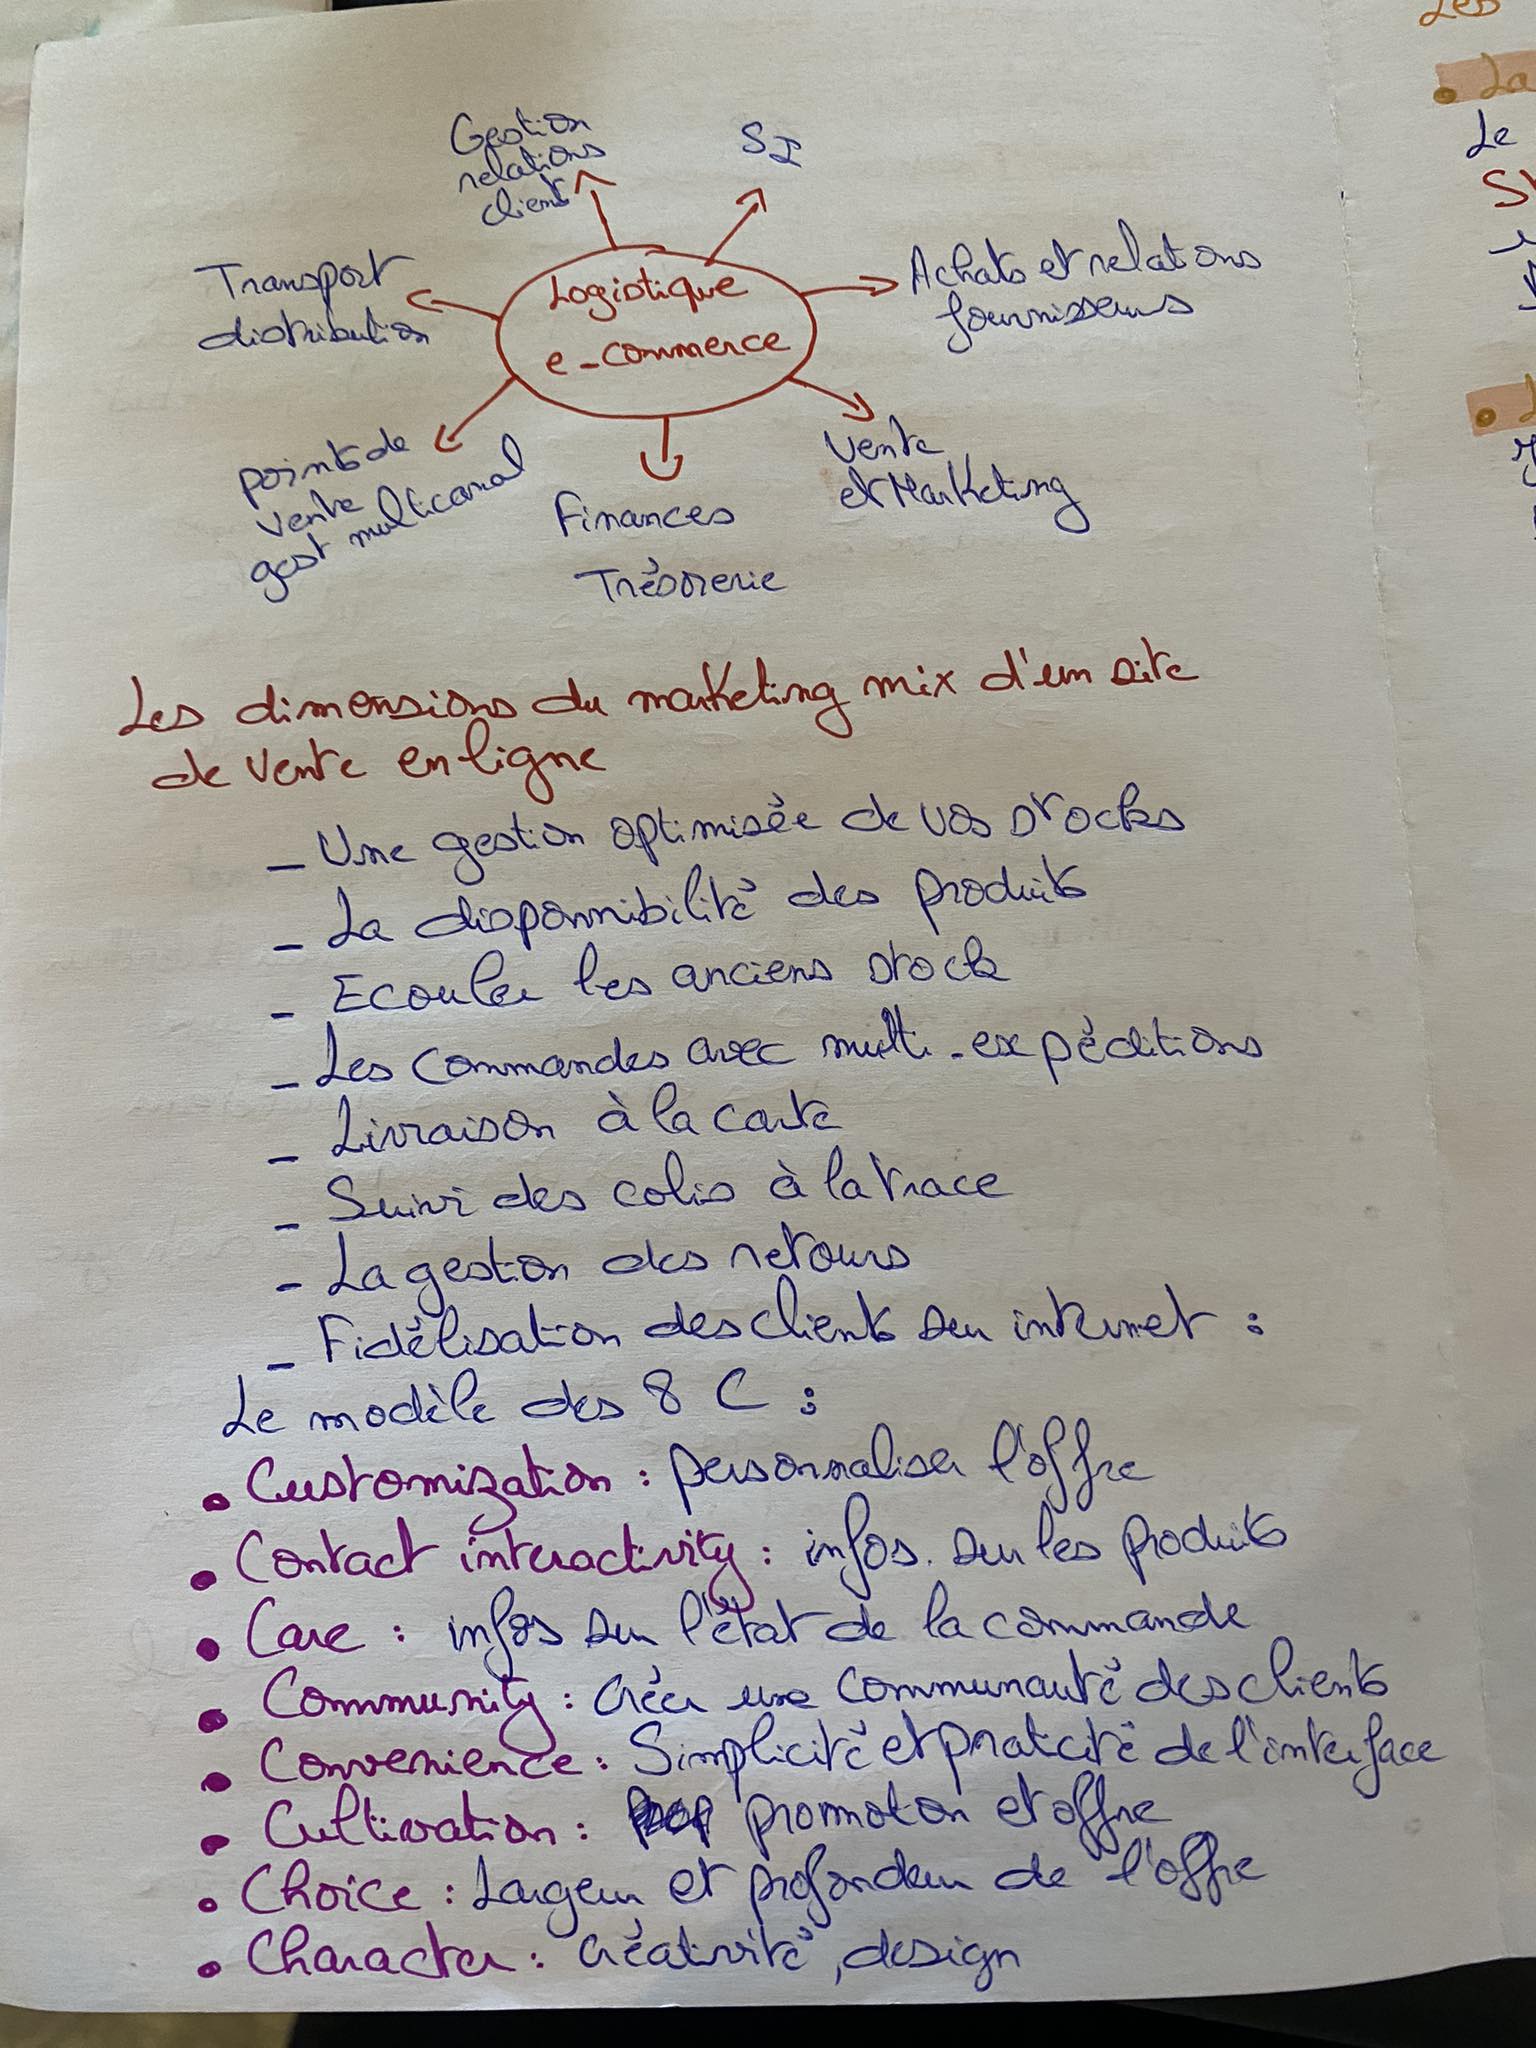 Gestion
relations
client
SI
Transport
distribution
Logistique
e-commerce
Achats et relations
fournisseurs
points de
vente
gest multicanal
Finances
Trésorerie
Vente
et Marketing
Les dimensions du marketing mix d'un site
de vente en ligne
- Une gestion optimisée de vos stocks
- La disponnibilité des produits
- Ecouler les anciens stock
- Les commandes avec multi-expéditions
- Livraison à la carte
- Suivi des colis à la trace
- La gestion des retours
- Fidélisation des clients sur internet :
Le modèle des 8 C :
• Customization : personnaliser l'offre
• Contact interactivity : infos. sur les produits
• Care : infos sur l'état de la commande
• Community : créer une communauté des clients
• Convenience : Simplicité et praticité de l'interface
• Cultivation : promoton et offre
• Choice : Largeur et profondeur de l'offre
• Character : créativité, design
Les
• La
Le